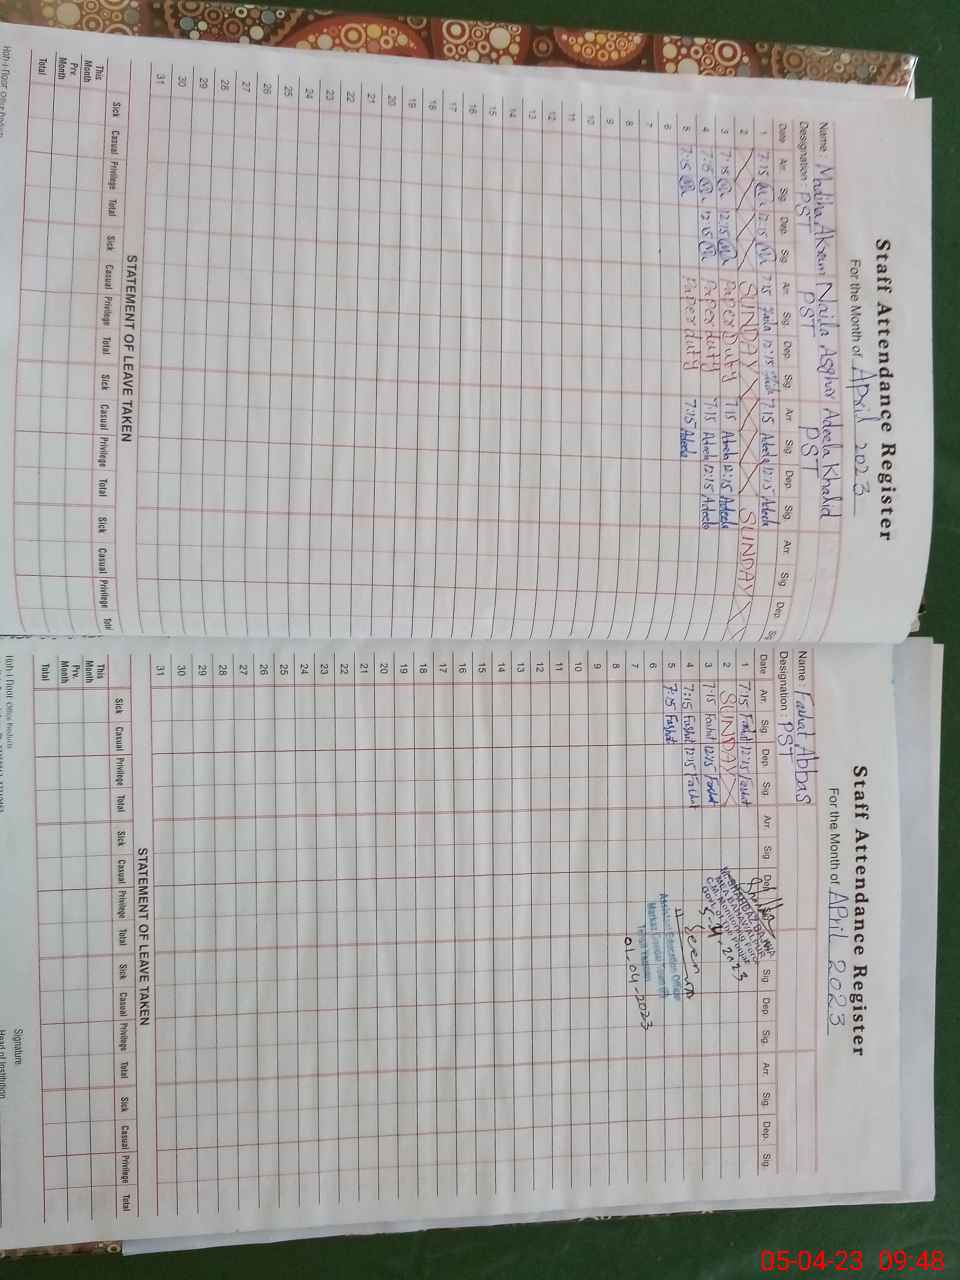 Staff Attendance Register
For the Month of April 2023
Name : Madiha Akram Naila Asghar Adeela Khalid
Designation : PST PST PST
Date Arr. Sig. Dep. Sig Arr. Sig. Dep. Sig. Arr Sig. Dep. Sig. Arr. Sig. Dep.
1 7:15 12:15 7:15 Naila 12:15 7:15 Adeela 12:15 Adeela
2 SUNDAY SUNDAY
3 7:15 12:15 Paper Duty 7:15 Adeela 12:15 Adeela
4 7:15 12:15 Paper duty 7:15 Adeela 12:15 Adeela
5 7:15 Paper duty 7:15 Adeela
6
7
8
9
10
11
12
13
14
15
16
17
18
19
20
21
22
23
24
25
26
27
28
29
30
31
STATEMENT OF LEAVE TAKEN
Sick Casual Privilege Total Sick Casual Privilege Total Sick Casual Privilege Total Sick Casual Privilege Total
This Month
Prv. Month
Total
Staff Attendance Register
For the Month of April 2023
Name : Farhat Abbas
Designation : PST
Date Arr. Sig. Dep. Sig. Arr. Sig Dep. Sig. Dep. Sig. Arr. Sig. Dep. Sig.
1 7:15 Farhat 12:15 Farhat
2 SUNDAY
3 7:15 Farhat 12:15 Farhat
4 7:15 Farhat 12:15 Farhat
5 7:15 Farhat
6
7
8
9
10
11
12
13
14
15
16
17
18
19
20
21
22
23
24
25
26
27
28
29
30
31
MEA BAHAWALPUR
C.M. Monitoring Force
Govt. of The Punjab
5-04-2023
Seen
Assistant Education Officer
01-04-2023
STATEMENT OF LEAVE TAKEN
Sick Casual Privilege Total Sick Casual Privilege Total Sick Casual Privilege Total Sick Casual Privilege Total
This Month
Prv. Month
Total
Signature
Head of Institution
05-04-23 09:48